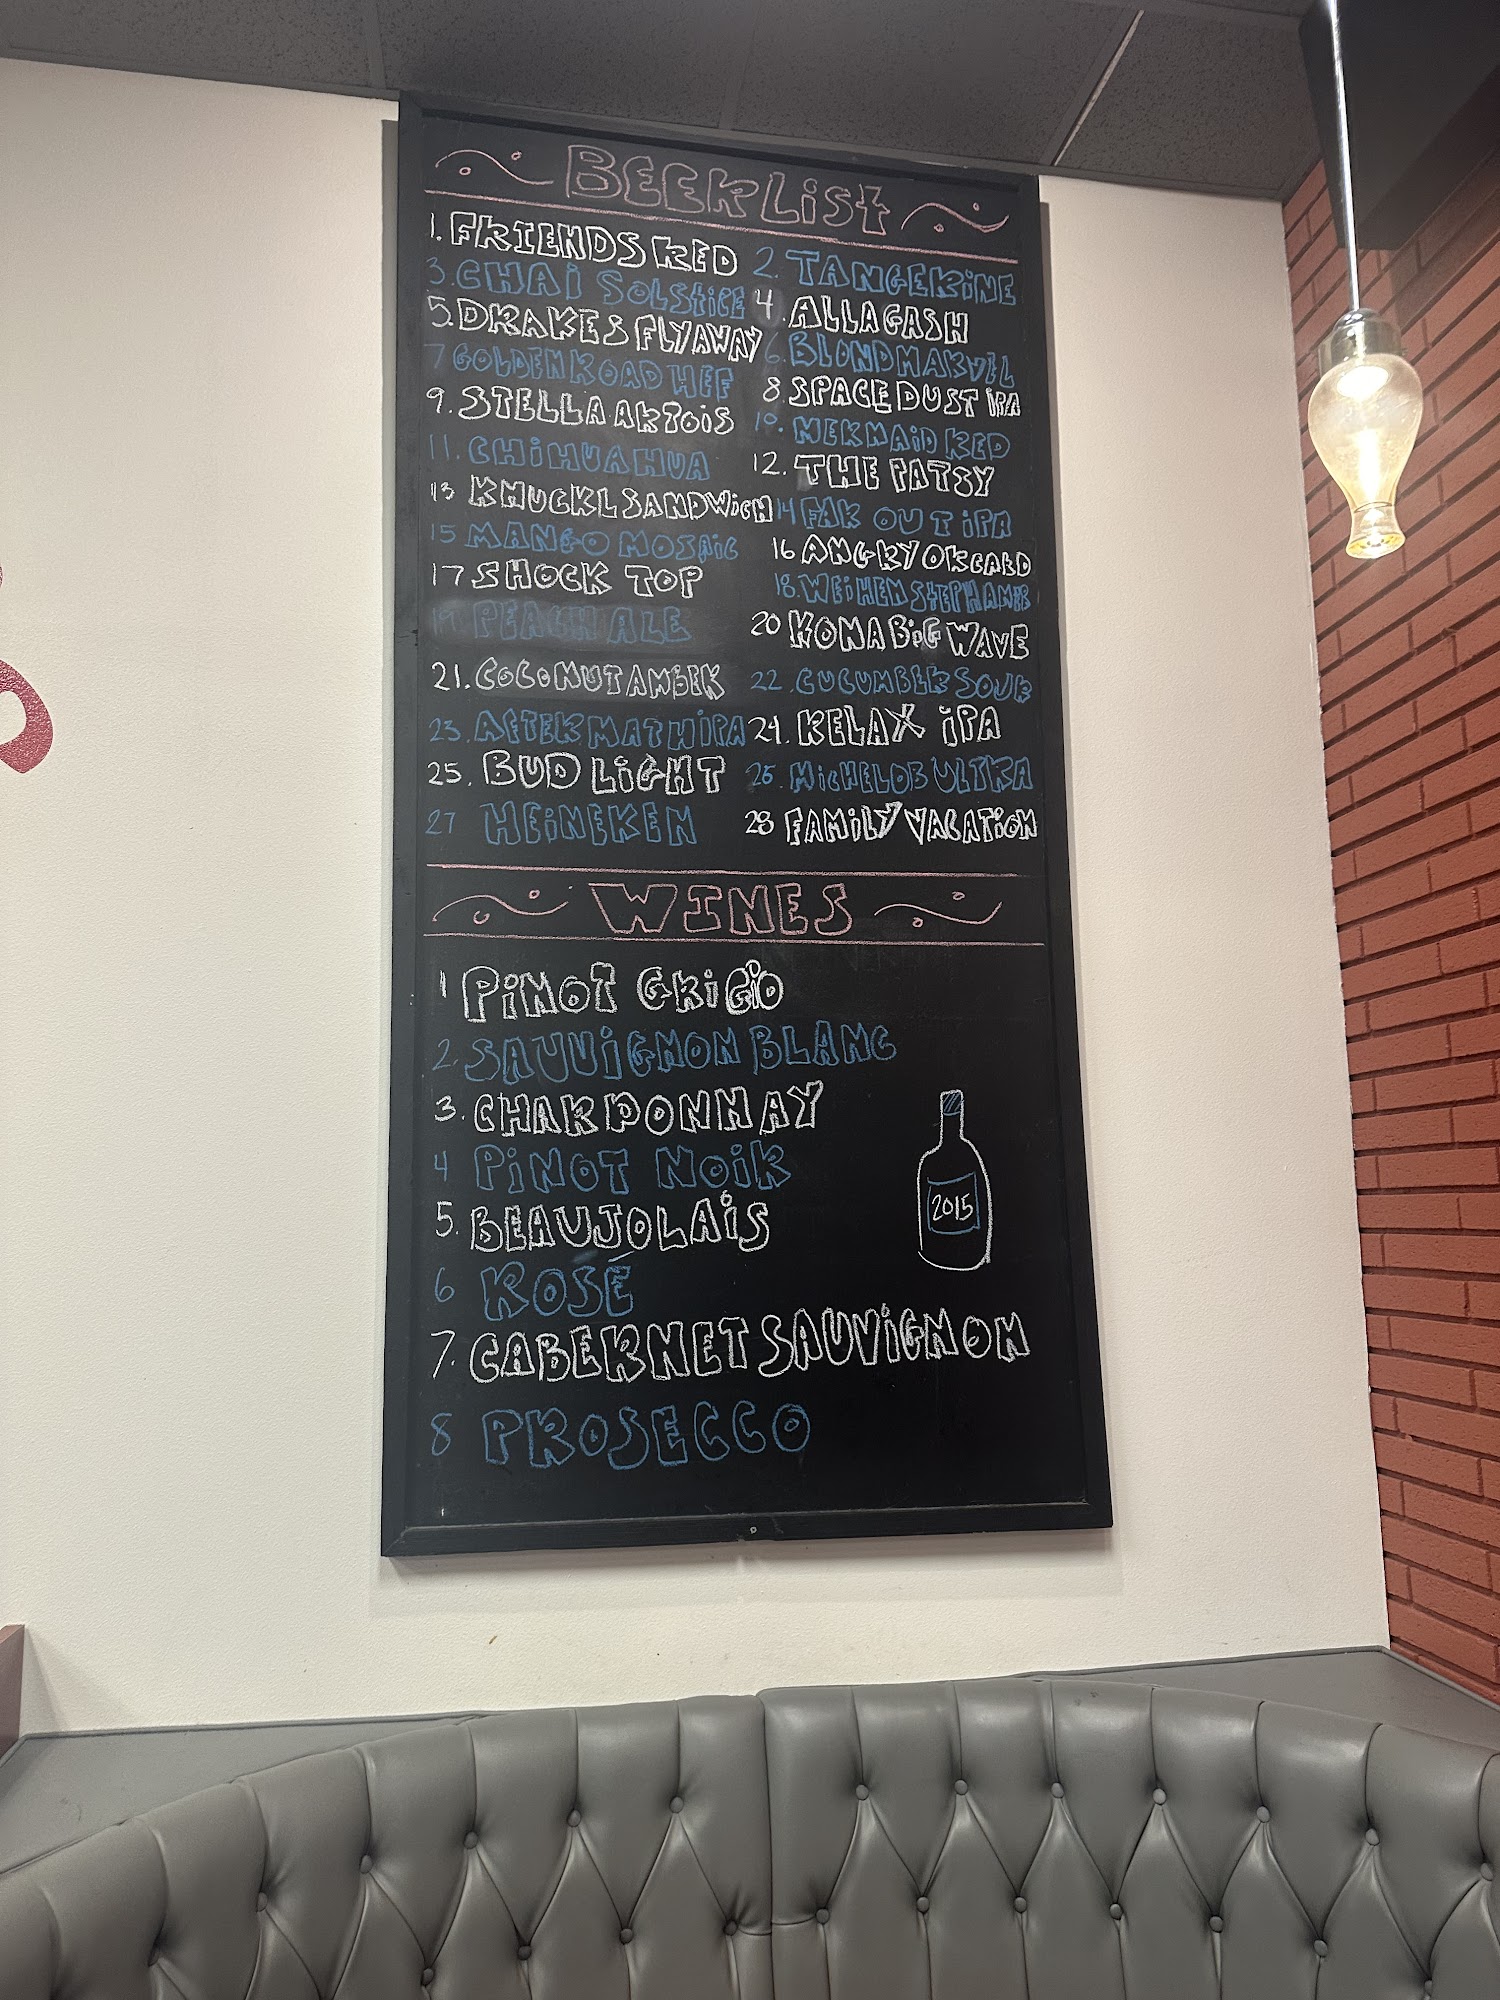 BEER LiSt
1. FRIENDS RED
2. TANGERiNE
3. CHAi SOLStiCE
4. ALLAGASH
5. DRAKES FLYAWAY
6. BLONDMARVEL
7 GOLDEN ROAD HEF
8. SPACE DUST iPA
9. STELLA ARTOiS
10. MERMAiD RED
11. CHiHUAHUA
12. THE PATSY
13 KNUCKLSANDWiCH
14 FAR OUT iPA
15 MANGO MOSAiC
16 ANGRY ORCARD
17 SHOCK TOP
18. WEiHENSTEPHANER
19 PEACH ALE
20 KONA BiG WAVE
21. COCONUT AMBER
22 CUCUMBER SOUR
23. AFTERMATH iPA
24. RELAX iPA
25. BUD LiGHT
26. MiCHELOB ULTRA
27 HEiNEKEN
28 FAMiLY VACATiON
WINES
1 PiNOT GRiGiO
2. SAUVIGNON BLANC
3. CHARDONNAY
4 PiNOT NOiR
5. BEAUJOLAiS
6 ROSÉ
7. CABERNET SAUViGNON
8 PROSECCO
2015